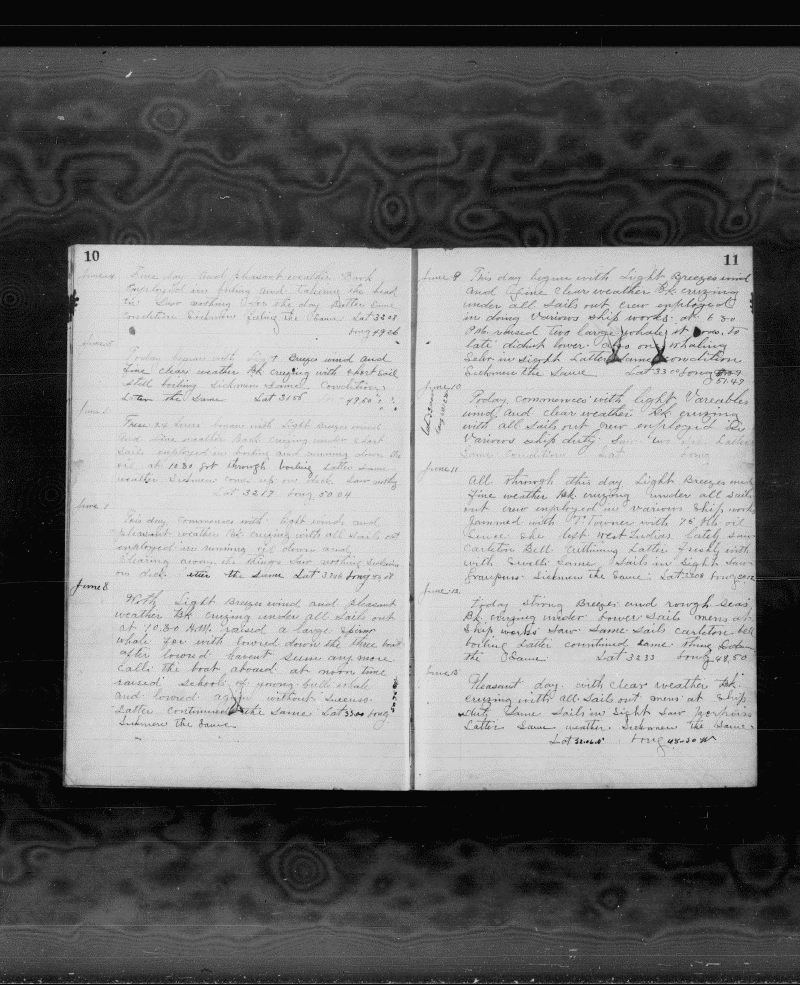 10
June 4 Fine day and pleasant weather Bark
employed in boiling and takeing the head
in Saw nothing for the day Latter Same
condition Sickmen feeling the Same Lat 33 08
Long 49 26
June 5
Today began with light Breezes wind and
fine clear weather Bk cruzing with short sail
still boiling sickmen same Condition
Latter the Same Lat 31 05 49 50
June 6
These 24 hours began with Light Breezes wind
and fine weather Bark cruzing under short
sails employed in boiling and running down the
oil at 10 30 got through boiling Latter same
weather Sickmen comes up on deck Saw nothing
Lat 32 17 Long 50 04
June 7
This day commences with light winds and
pleasant weather Bk cruzing with all Sails out
employed in running oil down and
clearing away the things Saw nothing Sickmen
on deck Latter the Same Lat 33 06 Long
June 8
With Light Breezes wind and pleasant
weather Bk cruzing under all Sails out
at 10.30 A.M. raised a large Sperm
whale for with lowered down the three boat
after lowered havent seen any more
calls the boat aboard at noon time
raised schools of young bulls whale
and lowred again without Success
Latter continued the same Lat 33 00 Long
Sickmen the Same
11
June 9 This day began with Light Breezes wind
and fine clear weather Bk cruzing
under all Sails out crew employed
in doing various ship works at 6 30
P.M. raised two large whale at to
late didnt lower also one Whaling
Schr in sight Latter Same condition
Sickmen the Same Lat 33 00 Long
51.49
June 10
Today commences with light Variables
wind and clear weather Bk cruzing
with all Sails out crew employed in
Various ship duty Saw two Latter
Same condition Lat Long
June 11
All through this day Light Breezes and
fine weather Bk cruzing under all sails
out crew employed in various ship work
Jammed with T Towner with 75 bbls oil
Since She left West Indias lately saw
Carleton Bell Cutting Latter freshly with
with Swells Same Sails in Sight Saw
Sickmen the Same Lat 3208 Long
June 12
Today strong Breezes and rough Seas
Bk cruzing under lower sails mens at
Ship works Saw Same Sails carleton bell
boiling Latter countinued same thing
the Same Lat 32 33 Long 48,50
June 13
Pleasant day with clear weather Bk
cruzing with all Sails out mens at Ship
duty Same Sails in Sight Saw porpoises
Latter Same weather Sickmen the Same
Lat 32.06.N Long 48-30 W